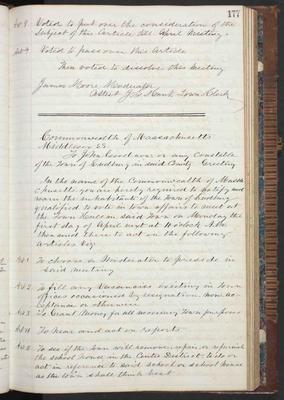 177
Art 8. Voted to put over the consideration of the
subject of this Article till April meeting.
Art 9 Voted to pass over this Article
Then voted to dissolve this meeting
James Moore Moderator
Attest Town Clerk
Commonwealth of Massachusetts
Middlesex SS.
To John or any Constable
of the Town of in said County Greeting
In the name of the Commonwealth of Massa
chusetts you are hereby required to notify and
warn the inhabitants of the Town of
qualified to vote in town affairs to meet at
the Town House in said Town on Monday the
first day of April next at 10 o'clock A.M.
then and there to act on the following
Articles Viz
Art 1. To choose a Moderator to preside in
said meeting
Art 2. To fill any Vacancies existing in town
offices occasioned by resignation non ac-
ceptance or otherwise
Art 3. To Grant Money for all necessary Town purposes
Art 4. To hear and act on reports
Art 5. To see if the town will remove, repair, or refurnish
the school house in the Centre District & to do or
act in reference to said school or school house
as the town shall think best